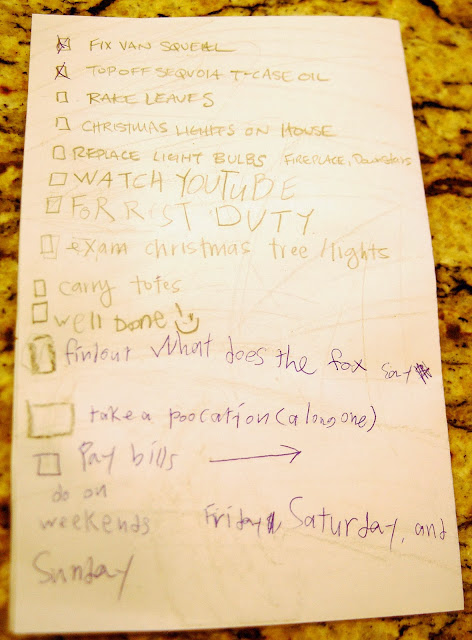 FIX VAN SQUEAL
TOP OFF SEQUOIA T-CASE OIL
RAKE LEAVES
CHRISTMAS LIGHTS ON HOUSE
REPLACE LIGHT BULBS FIREPLACE, Downstairs
WATCH YOUTUBE
FORREST DUTY
exam christmas tree / lights
carry totes
well Done
findout What does the fox say
take a poocation (a long one)
Pay bills
do on
weekends Friday, Saturday, and
Sunday